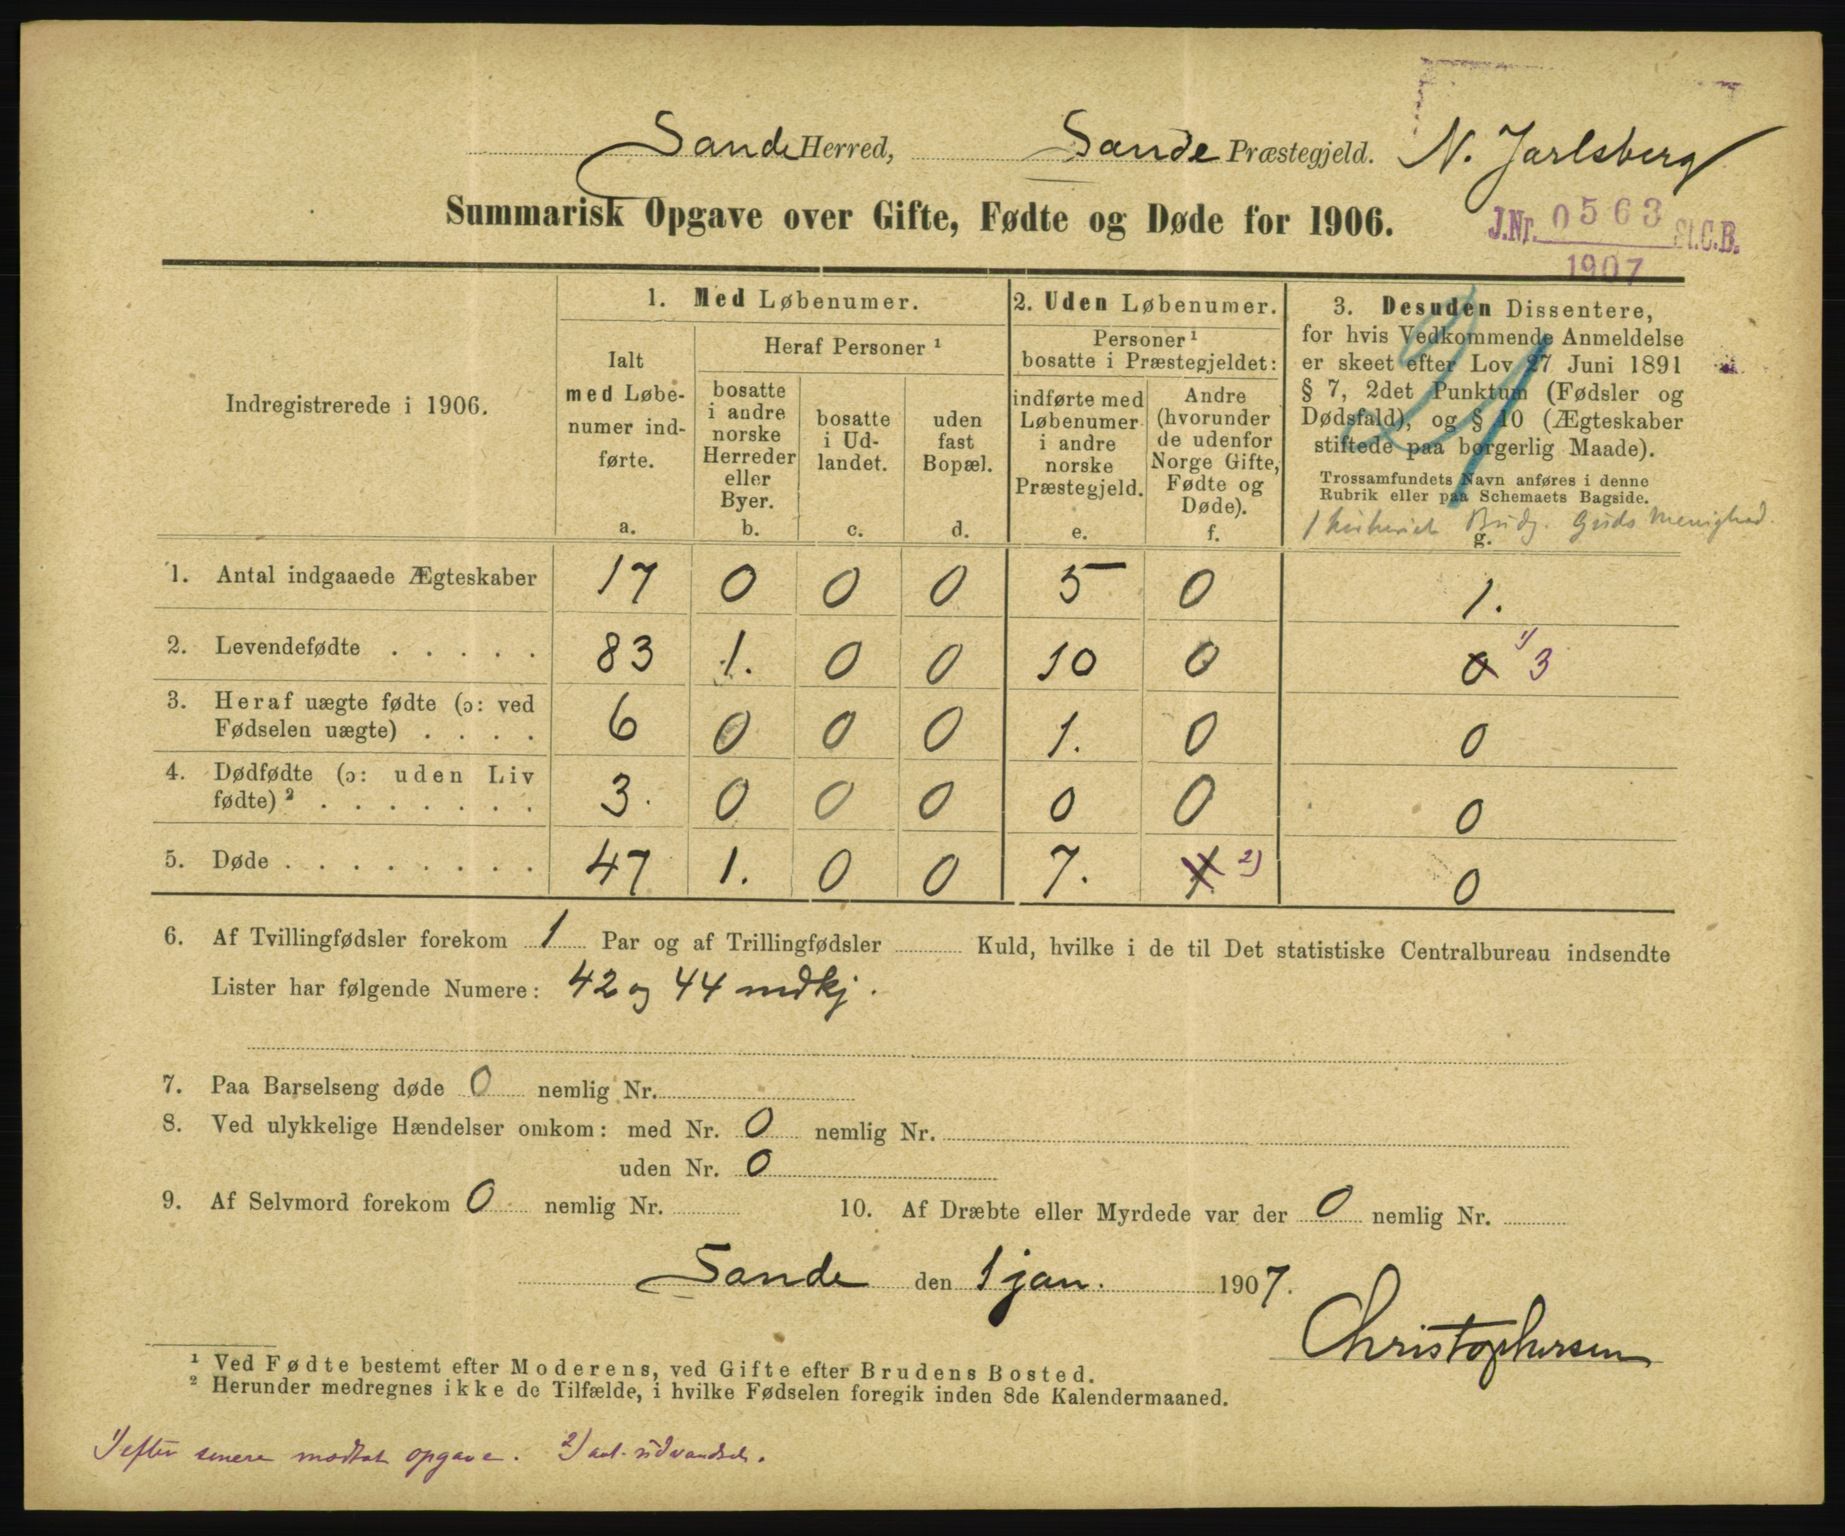 Sande Herred, Sande Præstegjeld. N. Jarlsberg
Summarisk Opgave over Gifte, Fødte og Døde for 1906.
J.Nr. 0563 St.C.B.
1907
21
Indregistrerede i 1906.
1. Med Løbenumer.
Ialt
med Løbe-
numer ind-
førte.
a.
Heraf Personer ¹
bosatte
i andre
norske
Herreder
eller
Byer.
b.
bosatte
i Ud-
landet.
c.
uden
fast
Bopæl.
d.
2. Uden Løbenumer.
Personer ¹
bosatte i Præstegjeldet:
indførte med
Løbenumer
i andre
norske
Præstegjeld.
e.
Andre
(hvorunder
de udenfor
Norge Gifte,
Fødte og
Døde).
f.
3. Desuden Dissentere,
for hvis Vedkommende Anmeldelse
er skeet efter Lov 27 Juni 1891
§ 7, 2det Punktum (Fødsler og
Dødsfald), og § 10 (Ægteskaber
stiftede paa borgerlig Maade).
Trossamfundets Navn anføres i denne
Rubrik eller paa Schemaets Bagside.
1 Brudg. Guds Menighed.
g.
1. Antal indgaaede Ægteskaber 17 0 0 0 5 0 1.
2. Levendefødte . . . . . 83 1. 0 0 10 0 0 ¹⁾ 3
3. Heraf uægte fødte (ɔ: ved
Fødselen uægte) . . . . 6 0 0 0 1. 0 0
4. Dødfødte (ɔ: uden Liv
fødte) ² . . . . . . . 3. 0 0 0 0 0 0
5. Døde . . . . . . . . 47 1. 0 0 7. 1. ²⁾ 0
6. Af Tvillingfødsler forekom 1 Par og af Trillingfødsler Kuld, hvilke i de til Det statistiske Centralbureau indsendte
Lister har følgende Numere: 42 og 44 mdkj.
7. Paa Barselseng døde 0 nemlig Nr.
8. Ved ulykkelige Hændelser omkom: med Nr. 0 nemlig Nr.
uden Nr. 0
9. Af Selvmord forekom 0 nemlig Nr. 10. Af Dræbte eller Myrdede var der 0 nemlig Nr.
Sande den 1 jan. 1907.
Christophersen
¹ Ved Fødte bestemt efter Moderens, ved Gifte efter Brudens Bosted.
² Herunder medregnes ikke de Tilfælde, i hvilke Fødselen foregik inden 8de Kalendermaaned.
¹⁾ efter senere modtat opgave. ²⁾ anl. udvandret.